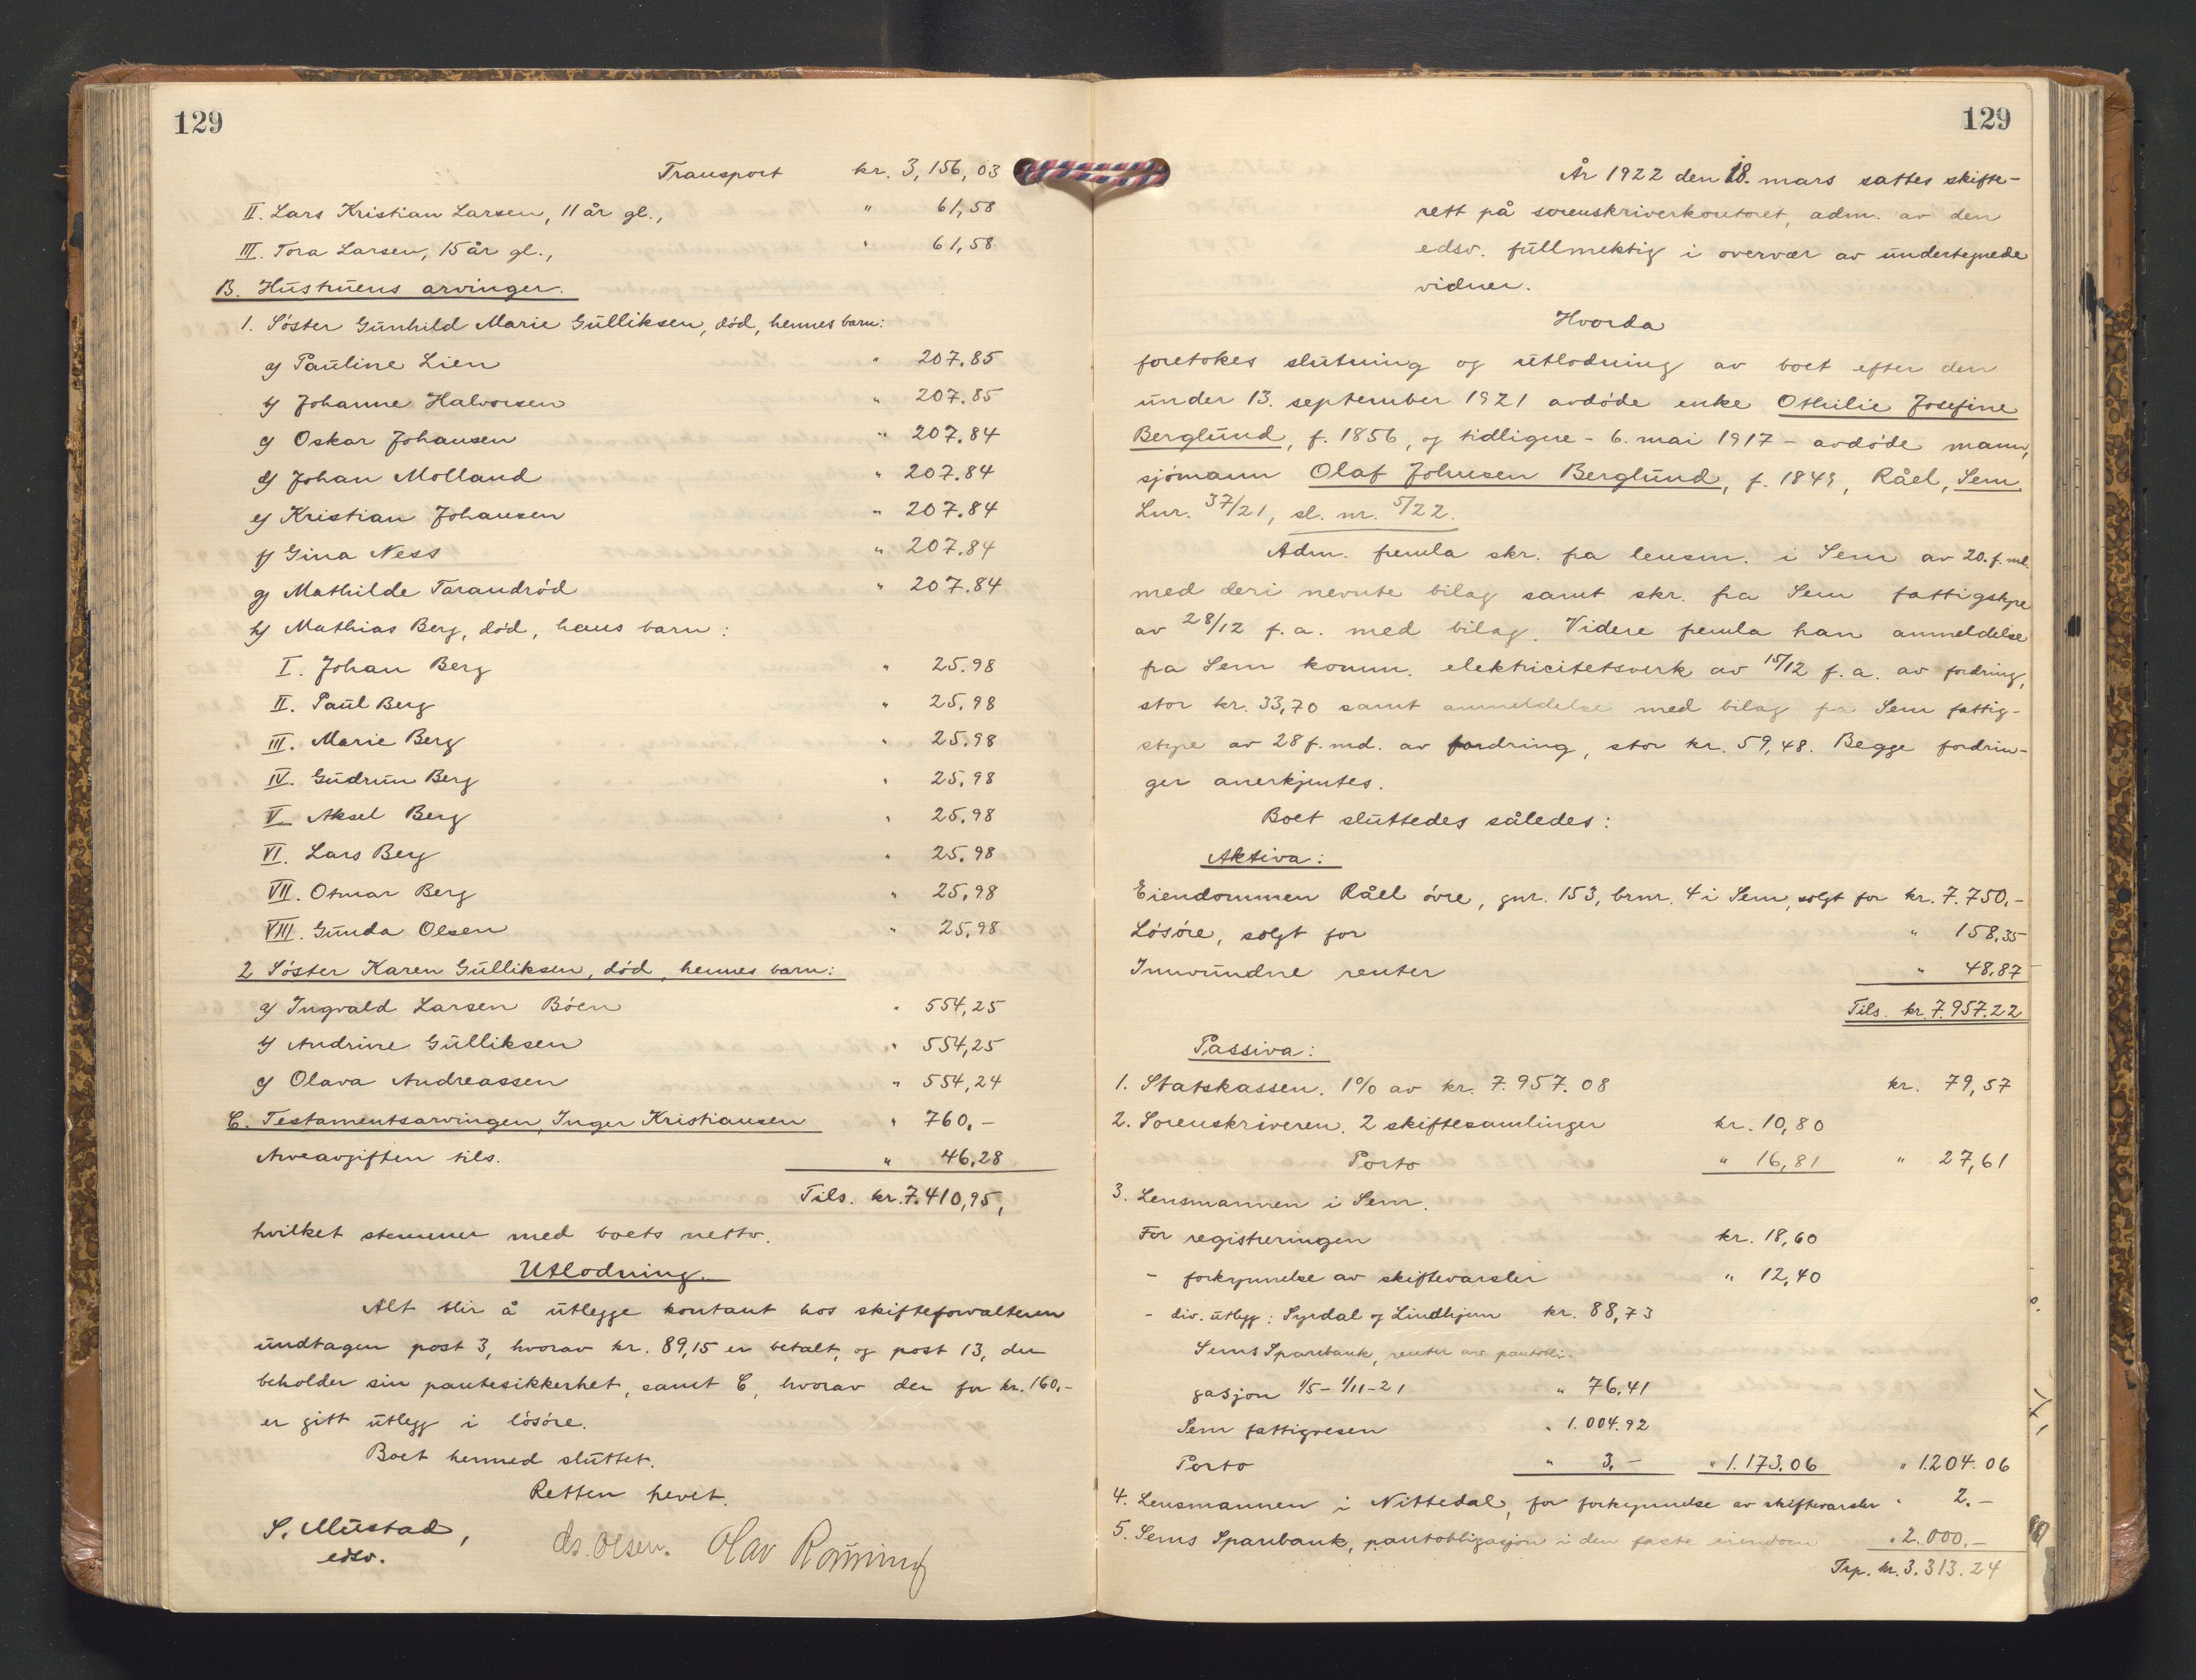 129
Transport kr. 3,156,03
II. Lars Kristian Larsen, 11 år gl., " 61,58
III. Tora Larsen, 15 år gl., " 61,58
B. Hustruens arvinger.
1. Søster Gunhild Marie Gulliksen, død, hennes barn:
a) Pauline Lien " 207.85
b) Johanne Halvorsen " 207.85
c) Oskar Johansen " 207.84
d) Johan Molland " 207.84
e) Kristian Johansen " 207.84
f) Gina Ness " 207.84
g) Mathilde Tarandrød " 207.84
h) Mathias Berg, død, hans barn:
I. Johan Berg " 25.98
II. Paul Berg " 25.98
III. Marie Berg " 25.98
IV. Gudrun Berg " 25.98
V. Aksel Berg " 25.98
VI. Lars Berg " 25.98
VII. Otmar Berg " 25.98
VIII. Gunda Olsen " 25.98
2 Søster Karen Gulliksen, død, hennes barn:
a) Ingvald Larsen Bøen " 554,25
b) Andrine Gulliksen " 554,25
c) Olava Andreassen " 554,24
C. Testamentsarvingen, Inger Kristiansen " 760.-
Arveavgiften tils. " 46.28
Tils. kr. 7.410,95,
hvilket stemmer med boets netto.
Utlodning.
Alt blir å utlegge kontant hos skifteforvalteren
undtagen post 3, hvorav kr. 89,15 er betalt, og post 13, der
beholder sin pantesikkerhet, samt C, hvorav der for kr. 160,-
er gitt utlegg i løsøre.
Boet hermed sluttet.
Retten hevet.
S. Mustad,
edsv.
As. Olsen. Olav Rønning
129
År 1922 den 18. mars sattes skifte-
rett på sorenskriverkontoret, adm. av den
edsv. fullmektig i overvær av undertegnede
vidner.
Hvorda
foretokes slutning og utlodning av boet efter den
under 13. september 1921 avdøde enke Othilie Josefine
Berglund, f. 1856, og tidligere - 6. mai 1917 - avdøde mann,
sjømann Olaf Johnsen Berglund, f. 1849, Råel, Sem
Lnr. 37/21, sl. nr. 5/22.
Adm. fremla skr. fra lensm. i Sem av 20. f. md.
med deri nevnte bilag samt skr. fra Sem fattigstyre
av 28/12 f.a. med bilag. Videre fremla han anmeldelse
fra Sem komm. elektricitetsverk av 15/12 f.a. av fordring,
stor kr. 33,70 samt anmeldelse med bilag fra Sem fattig-
styre av 28 f. md. av fordring, stor kr. 59,48. Begge fordrin-
ger anerkjentes.
Boet sluttedes således:
Aktiva:
Eiendommen Råel øvre, gnr. 153, brnr. 4 i Sem, solgt for kr. 7.750,-
Løsøre, solgt for " 158,35
Innvundne renter " 48,87
Tils. kr. 7.957.22
Passiva:
1. Statskassen. 1% av kr. 7.957.08 kr. 79,57
2. Sorenskriveren. 2 skiftesamlinger kr. 10,80
Porto " 16,81 " 27,61
3. Lensmannen i Sem.
For registreringen kr. 18,60
- forkynnelse av skiftevarsler " 12,40
- div. utlegg: Syrdal og Lindhjem kr. 88,73
Sems Sparebank, renter av pantobli-
gasjon 1/5 - 1/11 - 21 " 76,41
Sem fattigvesen " 1.004.92
Porto " 3.- " 1.173.06 " 1.204.06
4. Lensmannen i Nittedal, for forkynnelse av skiftevarsler " 2.-
5. Sems Sparebank, pantobligasjon i den faste eiendom " 2.000.-
Trp. kr. 3.313.24